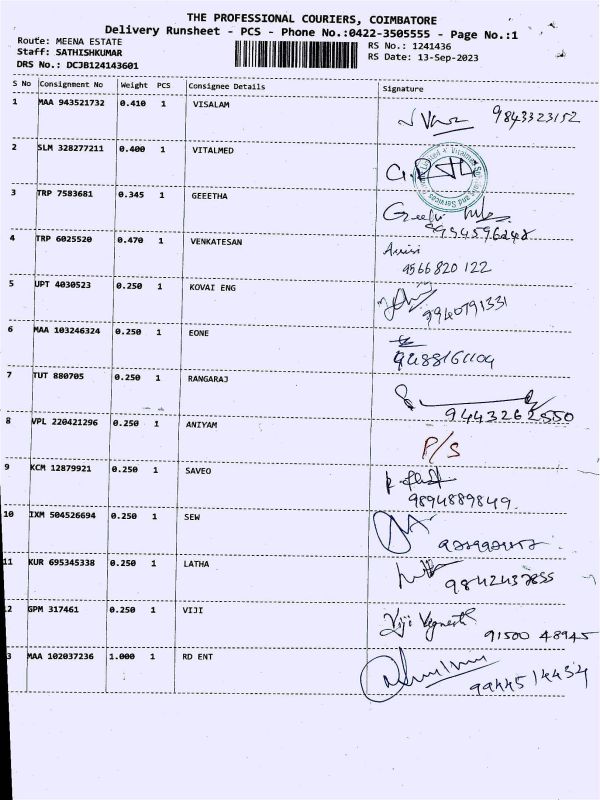 THE PROFESSIONAL COURIERS, COIMBATORE
Delivery Runsheet - PCS - Phone No.:0422-3505555 - Page No.:1
Route: MEENA ESTATE
RS No.: 1241436
Staff: SATHISHKUMAR
RS Date: 13-Sep-2023
DRS No.: DCJB124143601
S No Consignment No Weight PCS Consignee Details Signature
1 MAA 943521732 0.410 1 VISALAM
9843323152
2 SLM 328277211 0.400 1 VITALMED
3 TRP 7583681 0.345 1 GEEETHA
9994596242
4 TRP 6025520 0.470 1 VENKATESAN
9566820 122
5 UPT 4030523 0.250 1 KOVAI ENG
9940791331
6 MAA 103246324 0.250 1 EONE
9488161104
7 TUT 880705 0.250 1 RANGARAJ
9443263550
8 VPL 220421296 0.250 1 ANIYAM
P/S
9 KCM 12879921 0.250 1 SAVEO
9894889849.
10 IXM 504526694 0.250 1 SEW
11 KUR 695345338 0.250 1 LATHA
9842437855
2 GPM 317461 0.250 1 VIJI
Viji
91500 48945
3 MAA 102037236 1.000 1 RD ENT
9944514434